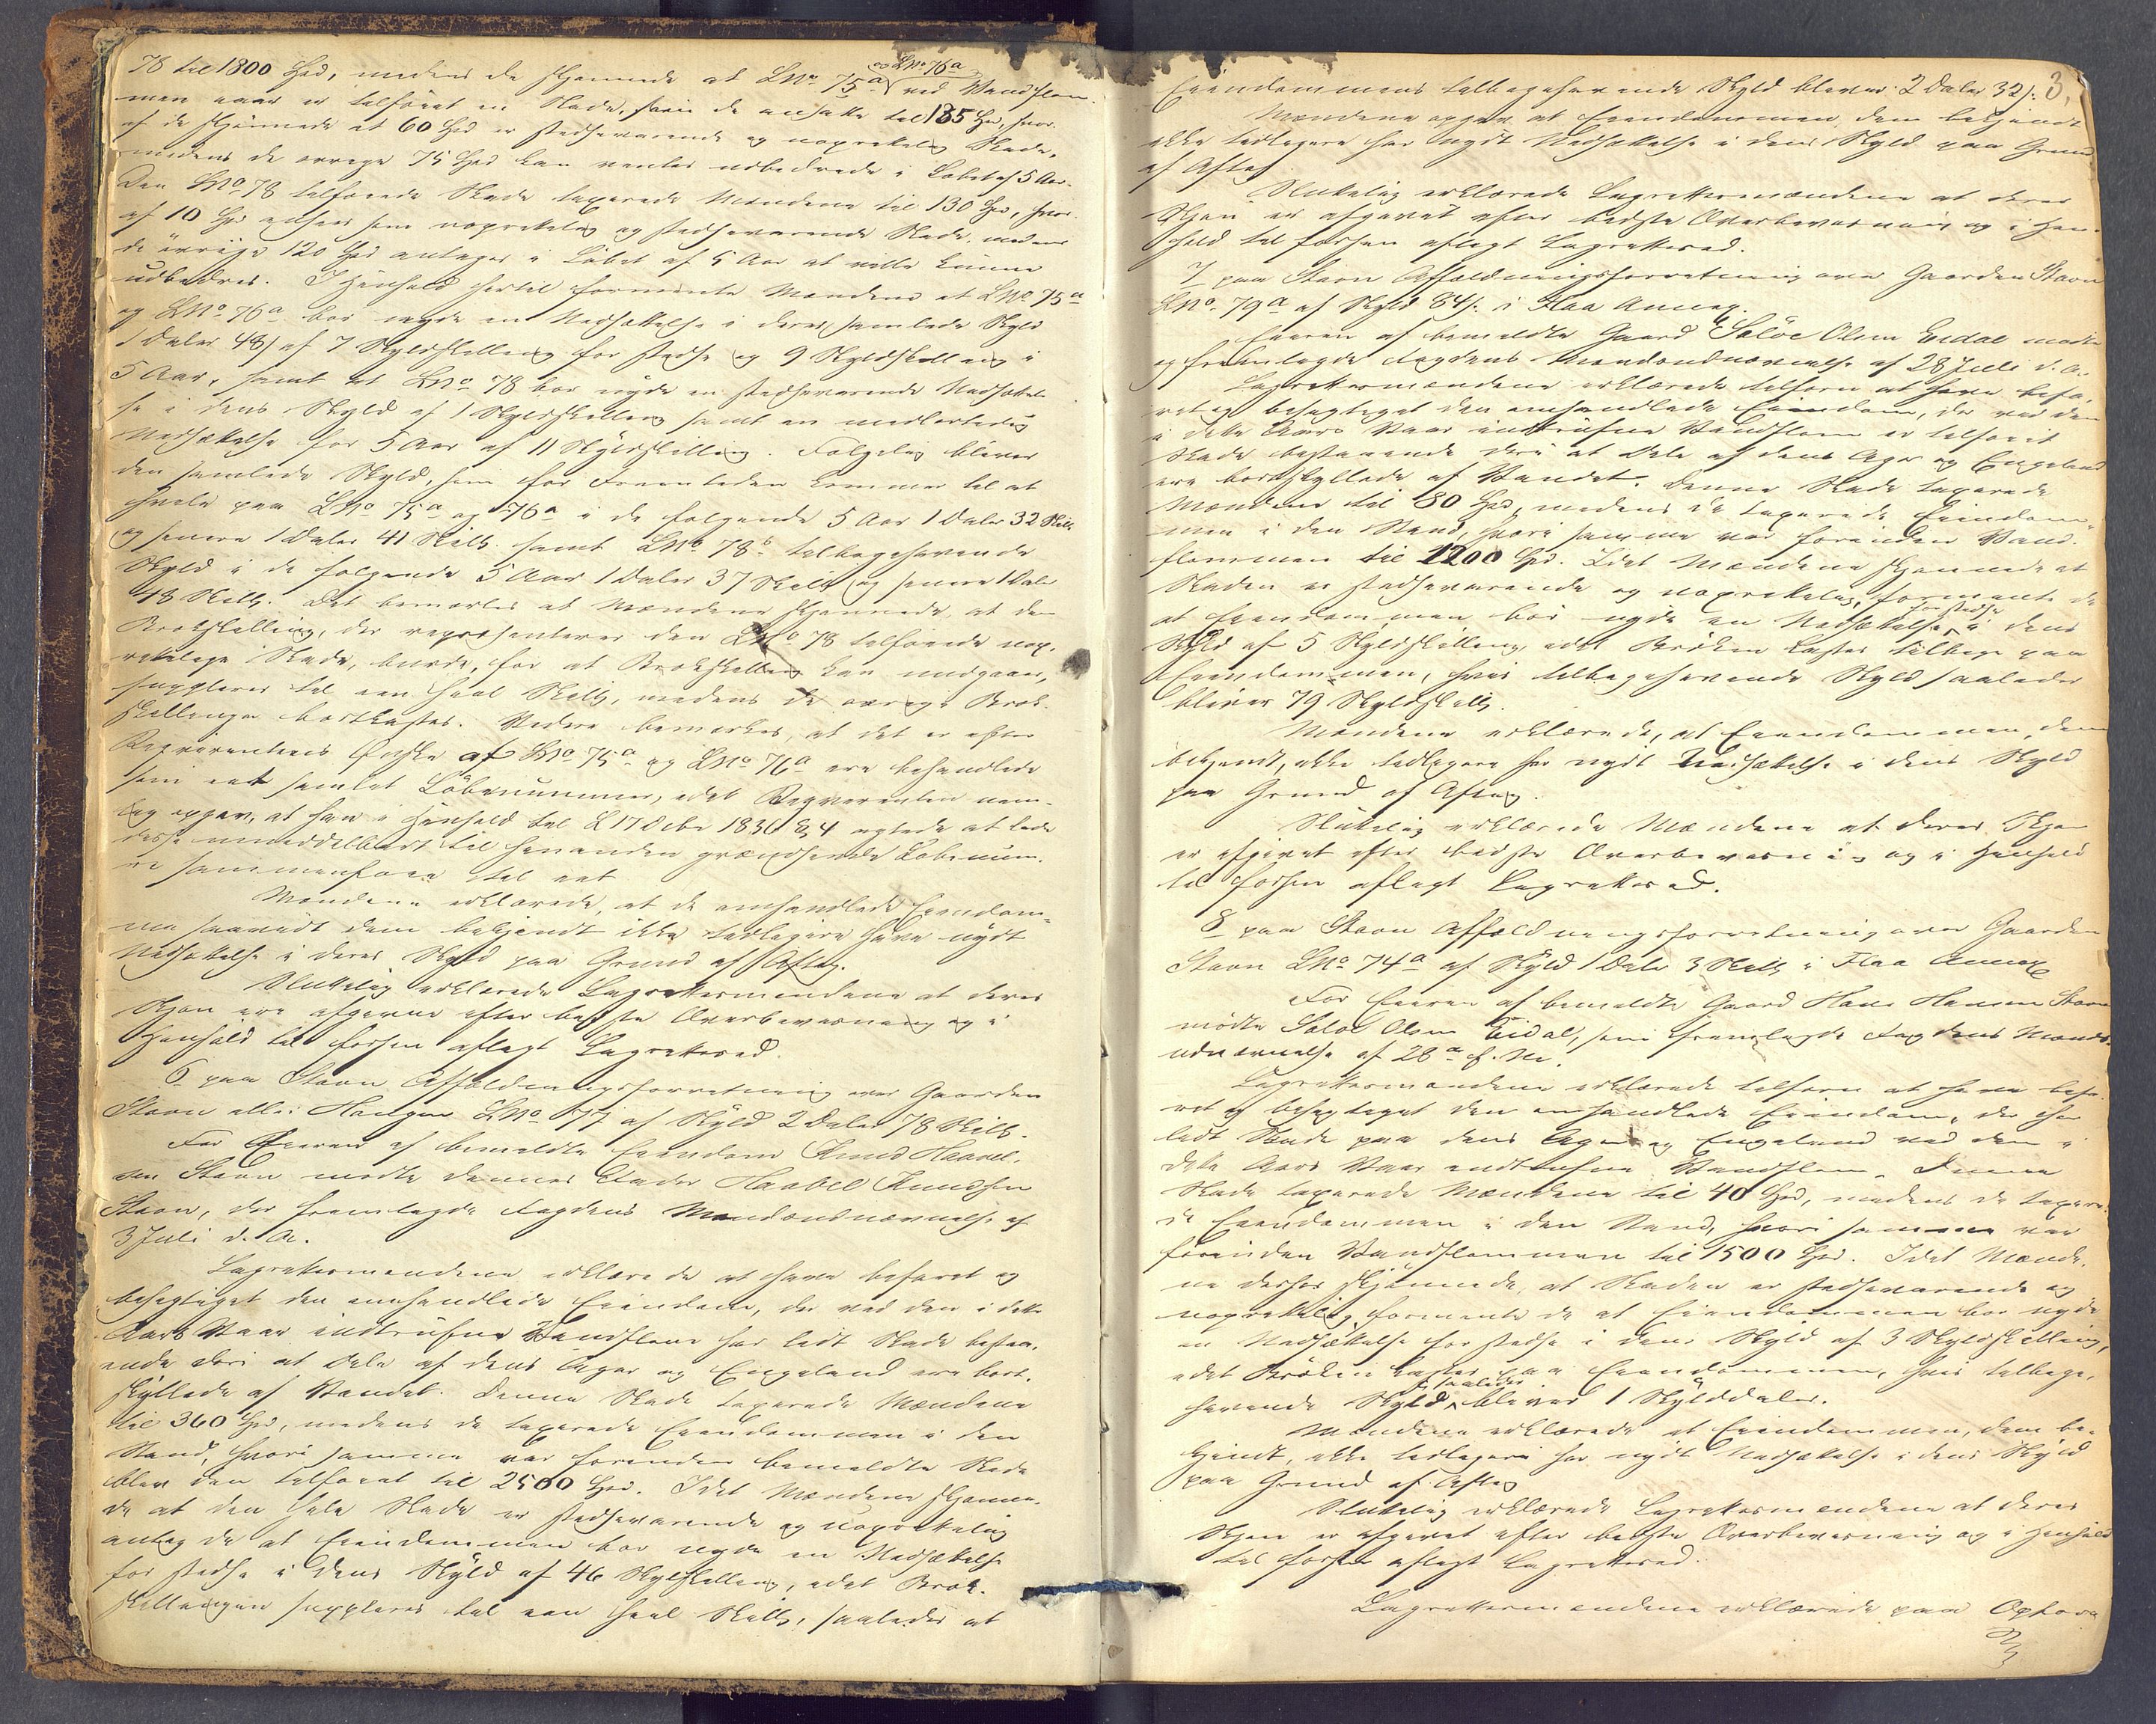 78 til 1800 Spd, medens de skjønnede at LNo 75a og LNo 76a ved Vandflom-
men naar er tilføiet en Skade, som de ansatte til 135 Spd, hvor-
af de skjønnede at 60 Spd er stedsevarende og uoprettelig Skade,
medens de øvrige 75 Spd kan ventes udbedrede i Løbet af 5 Aar.
Den LNo 78 tilføiede Skade taxerede Mændene til 130 Spd, hvor-
af 10 Spd ansees som uoprettelig og stedsevarende Skade, medens
de øvrige 120 Spd antages i Løbet af 5 Aar at ville kunne
udbedres. I Henhold hertil formente Mændene at LNo 75a
og LNo 76a bør nyde en Nedsættelse i deres samlede Skyld
1 Daler 48 s af 7 Skyldskilling for stedse og 9 Skyldskilling i
5 Aar, samt at LNo 78 bør nyde en stedsevarende Nedsættel-
se i dens Skyld af 1 Skyldskilling samt en midlertidig
Nedsættelse for 5 Aar af 11 Skyldskilling. Følgelig bliver
den samlede Skyld, som for Fremtiden kommer til at
hvile paa LNo 75a og 76a i de følgende 5 Aar 1 Daler 32 Skill
og senere 1 Daler 41 Skill. samt LNo 78s tilbageværende
Skyld i de følgende 5 Aar 1 Daler 37 Skill og senere 1 Daler
48 Skill. Det bemærkes at Mændene skjønnede, at den
Brøkskilling, der repræsenterer den LNo 78 tilføiede uop-
rettelige Skade, burde, for at Brøkskilling kan undgaaes,
suppleres til een heel Skill, medens de øvrige Brøk-
skillinger bortkastes. Videre bemærkes, at det er efter
Reqvirentens Ønske at LNo 75a og LNo 76a ere behandlede
som eet samlet Løbenummer, idet Reqvirenten nem-
lig opgav, at han i Henhold til L 17 Octbr 1836 § 4 agtede at lade
disse umiddelbart til hinanden grændsende Løbenum-
re sammenføie til eet
Mændene erklærede, at de omhandlede Eiendom-
me saavidt dem bekjendt ikke tidligere have nydt
Nedsættelse i deres Skyld paa Grund af Aftag.
Slutelig erklærede Lagrettesmændene at deres
Skjøn ere afgivne efter bedste Overbeviisning og i
Henhold til forhen aflagt Lagretteseed.
6 paa Stavn Affældningsforretning over Gaarden
Stavn eller Haugen LNo 77 af Skyld 2 Daler 78 Skill.
For Eieren af bemeldte Eiendom Knud Haavel-
sen Stavn mødte dennes Fader Haabel Knudsen
Stavn, der fremlagde Fogdens Mandsudnævnelse af
3 Juli d. A.
Lagrettesmændene erklærede at have befaret og
besigtiget den omhandlede Eiendom, der ved den i dette
Aars Vaar indtrufne Vandflom har lidt Skade bestaa-
ende deri at Dele af dens Ager og Engeland ere bort-
skyllede af Vandet. Denne Skade taxerede Mændene
til 360 Spd, medens de taxerede Eiendommen i den
Stand, hvori samme var forinden bemeldte Skade
blev den tilføiet til 2500 Spd. Idet Mændene skjønne-
de at den hele Skade er stedsevarende og uoprettelig
antog de at Eiendommen bør nyde en Nedsættelse
for stedse i dens Skyld af 46 Skyldskilling, idet Brøk-
skillingen suppleres til een heel Skill, saaledes at
3,
Eiendommens tilbageværende Skyld bliver 2 Daler 32 s.
Mændene opgav at Eiendommen, dem bekjendt
ikke tidligere har nydt Nedsættelse i dens Skyld paa Grund
af Aftag
Slutelig erklærede Lagrettesmændene at deres
Skjøn er afgivet efter bedste Overbeviisning og i Hen-
hold til forhen aflagt Lagretteseed.
7 paa Stavn Affældningsforretning over Gaarden Stavn
LNo 79a af Skyld 84 s. i Flaa Annex.
Eieren af bemeldte Gaard Salve Olsen Eidal mødte
og fremlagde Fogdens Mandsudnævnelse af 28 Juli d. A.
Lagrettesmændene erklærede tilforn at have befa-
ret og besigtiget den omhandlede Eiendom, der ved den
i dette Aars Vaar indtrufne Vandflom er tilføiet
Skade bestaaende deri at Dele af dens Ager og Engeland
ere bortskyllede af Vandet. Denne Skade taxerede
Mændene til 80 Spd, medens de taxerede Eiendom-
men i den Stand, hvori samme var forinden Vand-
flommen til 1200 Spd. Idet Mændene skjønnede at
Skaden er stedsevarende og uoprettelig, formente de
at Eiendommen bør nyde en Nedsættelse for stedse i dens
Skyld af 5 Skyldskilling, idet Brøken kastes tilbage paa
Eiendommen, hvis tilbageværende Skyld saaledes
bliver 79 Skyldskill.
Mændene erklærede, at Eiendommen, dem
bekjendt, ikke tidligere har nydt Nedsættelse i dens Skyld
paa Grund af Aftag.
Slutelig erklærede Mændene at deres Skjøn
er afgivet efter bedste Overbeviisning og i Henhold
til forhen aflagt Lagretteseed.
8 paa Stavn Affældningsforretning over Gaarden
Stavn LNo 74a af Skyld 1 Daler 3 Skill i Flaa Annex
For Eieren af bemeldte Gaard Hans Hansen Stavn
mødte Salve Olsen Eidal, som fremlagde Fogdens Mands-
udnævnelse af 28de f. M.
Lagrettesmændene erklærede tilforn at have befa-
ret og besigtiget den omhandlede Eiendom, der har
lidt Skade paa dens Ager og Engeland ved den i
dette Aars Vaar indtrufne Vandflom. Denne
Skade taxerede Mændene til 40 Spd, medens de taxere-
de Eiendommen i den Stand, hvori samme var
forinden Vandflommen til 1500 Spd. Idet Mænde-
ne derhos skjønnede, at Skaden er stedsevarende og
uoprettelig, formente de at Eiendommen bør nyde
en Nedsættelse for stedse i dens Skyld af 3 Skyldskilling,
idet Brøken kastes paa Eiendommen, hvis tilbage-
værende Skyld saaledes bliver 1 Skylddaler.
Mændene erklærede at Eiendommen, dem be-
kjendt, ikke tidligere har nydt Nedsættelse i dens Skyld
paa Grund af Aftag
Slutelig erklærede Lagrettesmændene at deres
Skjøn er afgivet efter bedste Overbeviisning og i Henhold
til forhen aflagt Lagretteseed.
Lagrettesmændene erklærede paa Opford